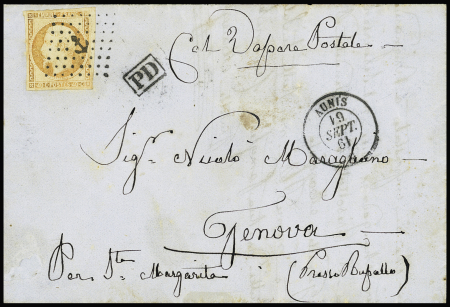 Col Vapore Postale
PD
AUNIS
19
SEPT.
61
Sigr. Nicolò
Genova
Per Sta Margarita (Presso Rapallo)